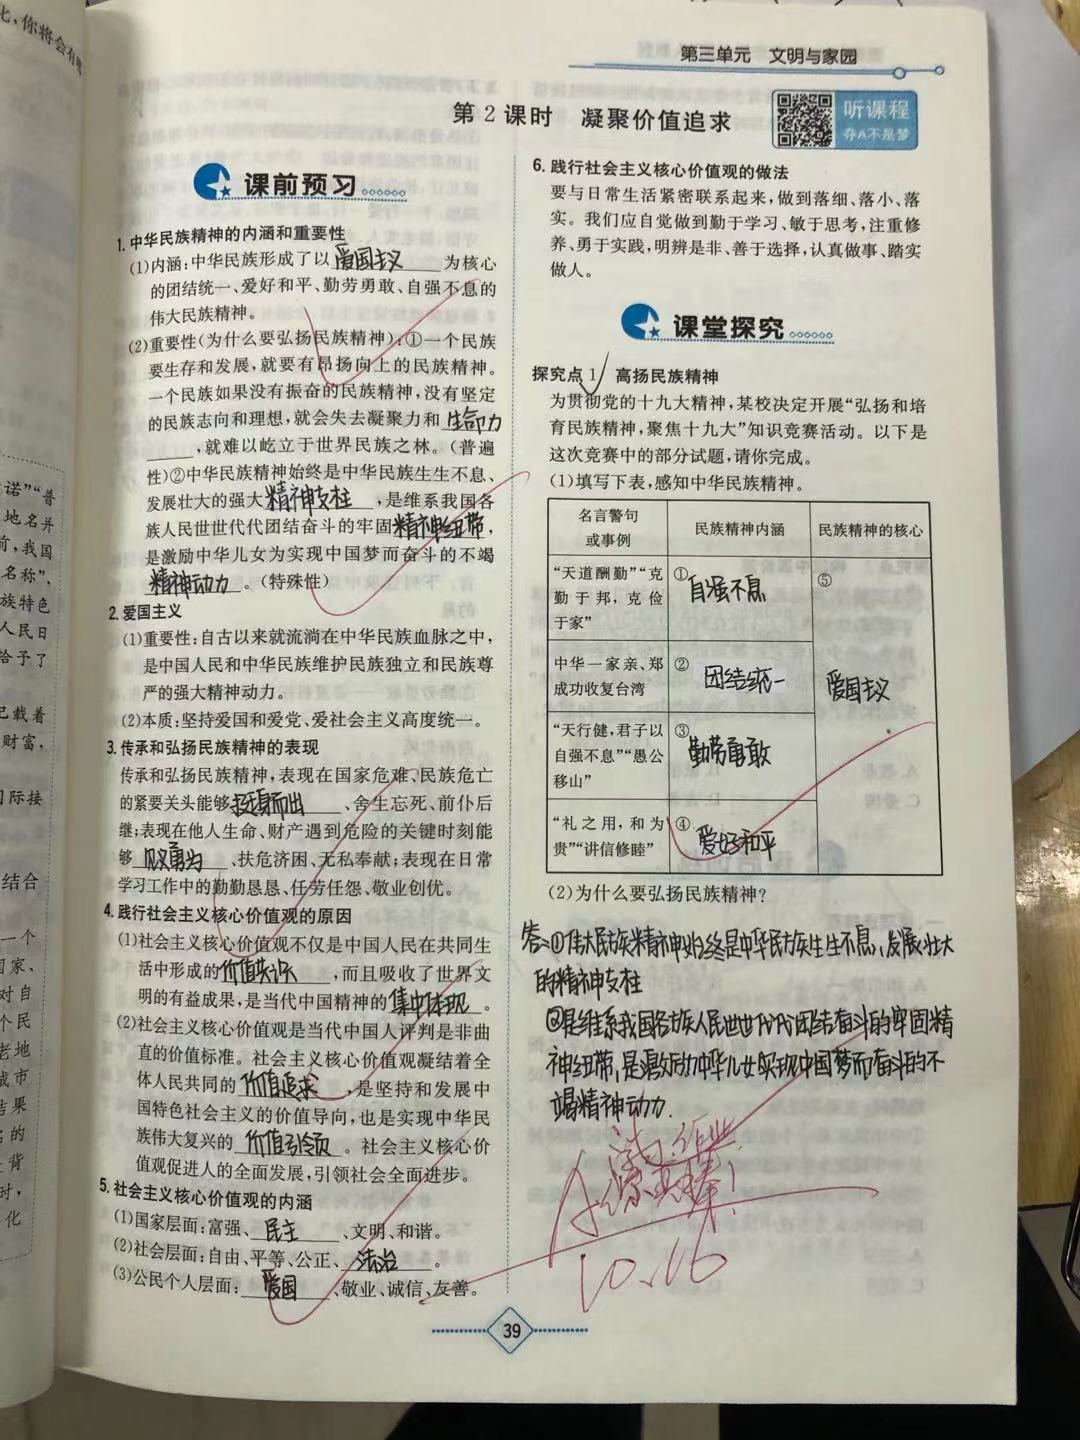 七，你将会有
第三单元 文明与家园
第2课时 凝聚价值追求
听课程
夺A不是梦
课前预习
1.中华民族精神的内涵和重要性
(1)内涵:中华民族形成了以爱国主义为核心
的团结统一、爱好和平、勤劳勇敢、自强不息的
伟大民族精神。
(2)重要性(为什么要弘扬民族精神):①一个民族
要生存和发展,就要有昂扬向上的民族精神。
一个民族如果没有振奋的民族精神,没有坚定
的民族志向和理想,就会失去凝聚力和生命力
,就难以屹立于世界民族之林。(普遍
性)②中华民族精神始终是中华民族生生不息、
发展壮大的强大精神支柱,是维系我国各
族人民世世代代团结奋斗的牢固精神纽带,
是激励中华儿女为实现中国梦而奋斗的不竭
精神动力。(特殊性)
2.爱国主义
(1)重要性:自古以来就流淌在中华民族血脉之中,
是中国人民和中华民族维护民族独立和民族尊
严的强大精神动力。
(2)本质:坚持爱国和爱党、爱社会主义高度统一。
3.传承和弘扬民族精神的表现
传承和弘扬民族精神,表现在国家危难、民族危亡
的紧要关头能够挺身而出、舍生忘死、前仆后
继;表现在他人生命、财产遇到危险的关键时刻能
够见义勇为、扶危济困、无私奉献;表现在日常
学习工作中的勤勤恳恳、任劳任怨、敬业创优。
4.践行社会主义核心价值观的原因
(1)社会主义核心价值观不仅是中国人民在共同生
活中形成的价值共识,而且吸收了世界文
明的有益成果,是当代中国精神的集中体现。
(2)社会主义核心价值观是当代中国人评判是非曲
直的价值标准。社会主义核心价值观凝结着全
体人民共同的价值追求,是坚持和发展中
国特色社会主义的价值导向,也是实现中华民
族伟大复兴的价值引领。社会主义核心价
值观促进人的全面发展,引领社会全面进步。
5.社会主义核心价值观的内涵
(1)国家层面:富强、民主、文明、和谐。
(2)社会层面:自由、平等、公正、法治。
(3)公民个人层面:爱国、敬业、诚信、友善。
6.践行社会主义核心价值观的做法
要与日常生活紧密联系起来,做到落细、落小、落
实。我们应自觉做到勤于学习、敏于思考,注重修
养、勇于实践,明辨是非、善于选择,认真做事、踏实
做人。
课堂探究
探究点1 高扬民族精神
为贯彻党的十九大精神,某校决定开展“弘扬和培
育民族精神,聚焦十九大”知识竞赛活动。以下是
这次竞赛中的部分试题,请你完成。
(1)填写下表,感知中华民族精神。
名言警句
或事例
民族精神内涵
民族精神的核心
“天道酬勤”“克
勤于邦,克俭
于家”
①自强不息
中华一家亲、郑
成功收复台湾
②团结统一
“天行健,君子以
自强不息”“愚公
移山”
③勤劳勇敢
“礼之用,和为
贵”“讲信修睦”
④爱好和平
⑤
爱国主义
(2)为什么要弘扬民族精神?
答:①伟大民族精神始终是中华民族生生不息、发展壮大
的精神支柱
②是维系我国各族人民世世代代团结奋斗的牢固精
神纽带,是激励中华儿女实现中国梦而奋斗的不
竭精神动力.
10.16
39